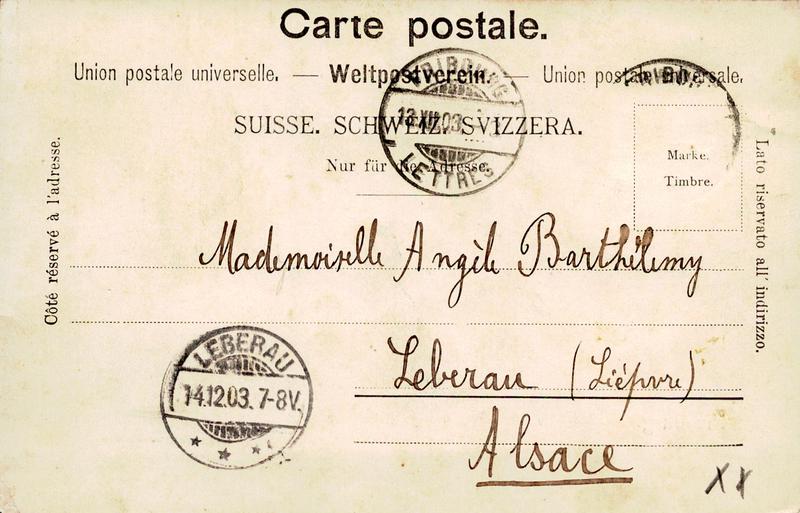 Carte postale.
Union postale universelle. — Weltpostverein. — Union postale universale.
FRIBOURG
13.XII.03
LETTRES
SUISSE. SCHWEIZ. SVIZZERA.
Nur für die Adresse.
Marke.
Timbre.
Côté réservé à l'adresse.
Lato riservato all' indirizzo.
Mademoiselle Angèle Barthélemy
LEBERAU
14.12.03. 7-8V.
Leberau (Lièpvre)
Alsace
XX